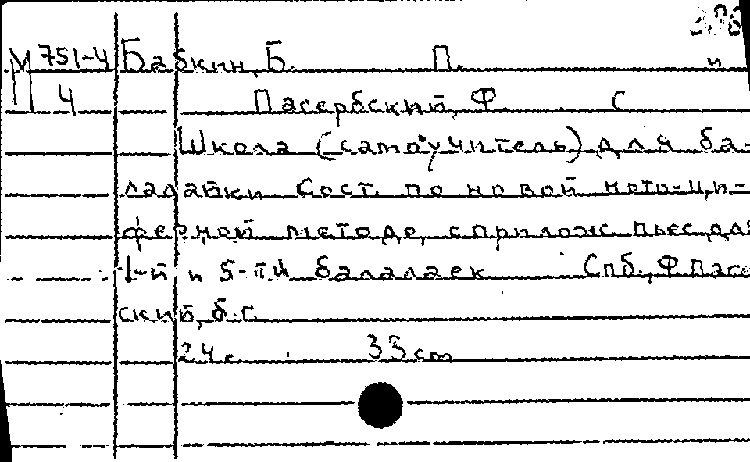 М 751-4 Бабкин, Б. П. и
4 Пасербский, Ф. С
Школа (самоучитель) для ба-
лалайки Сост. по новой нотно-ци-
ферной методе, с прилож. пьес для
1-й и 5-ти балалаек Спб., Ф Пасе
ский, б. г.
24 с. 33 cm